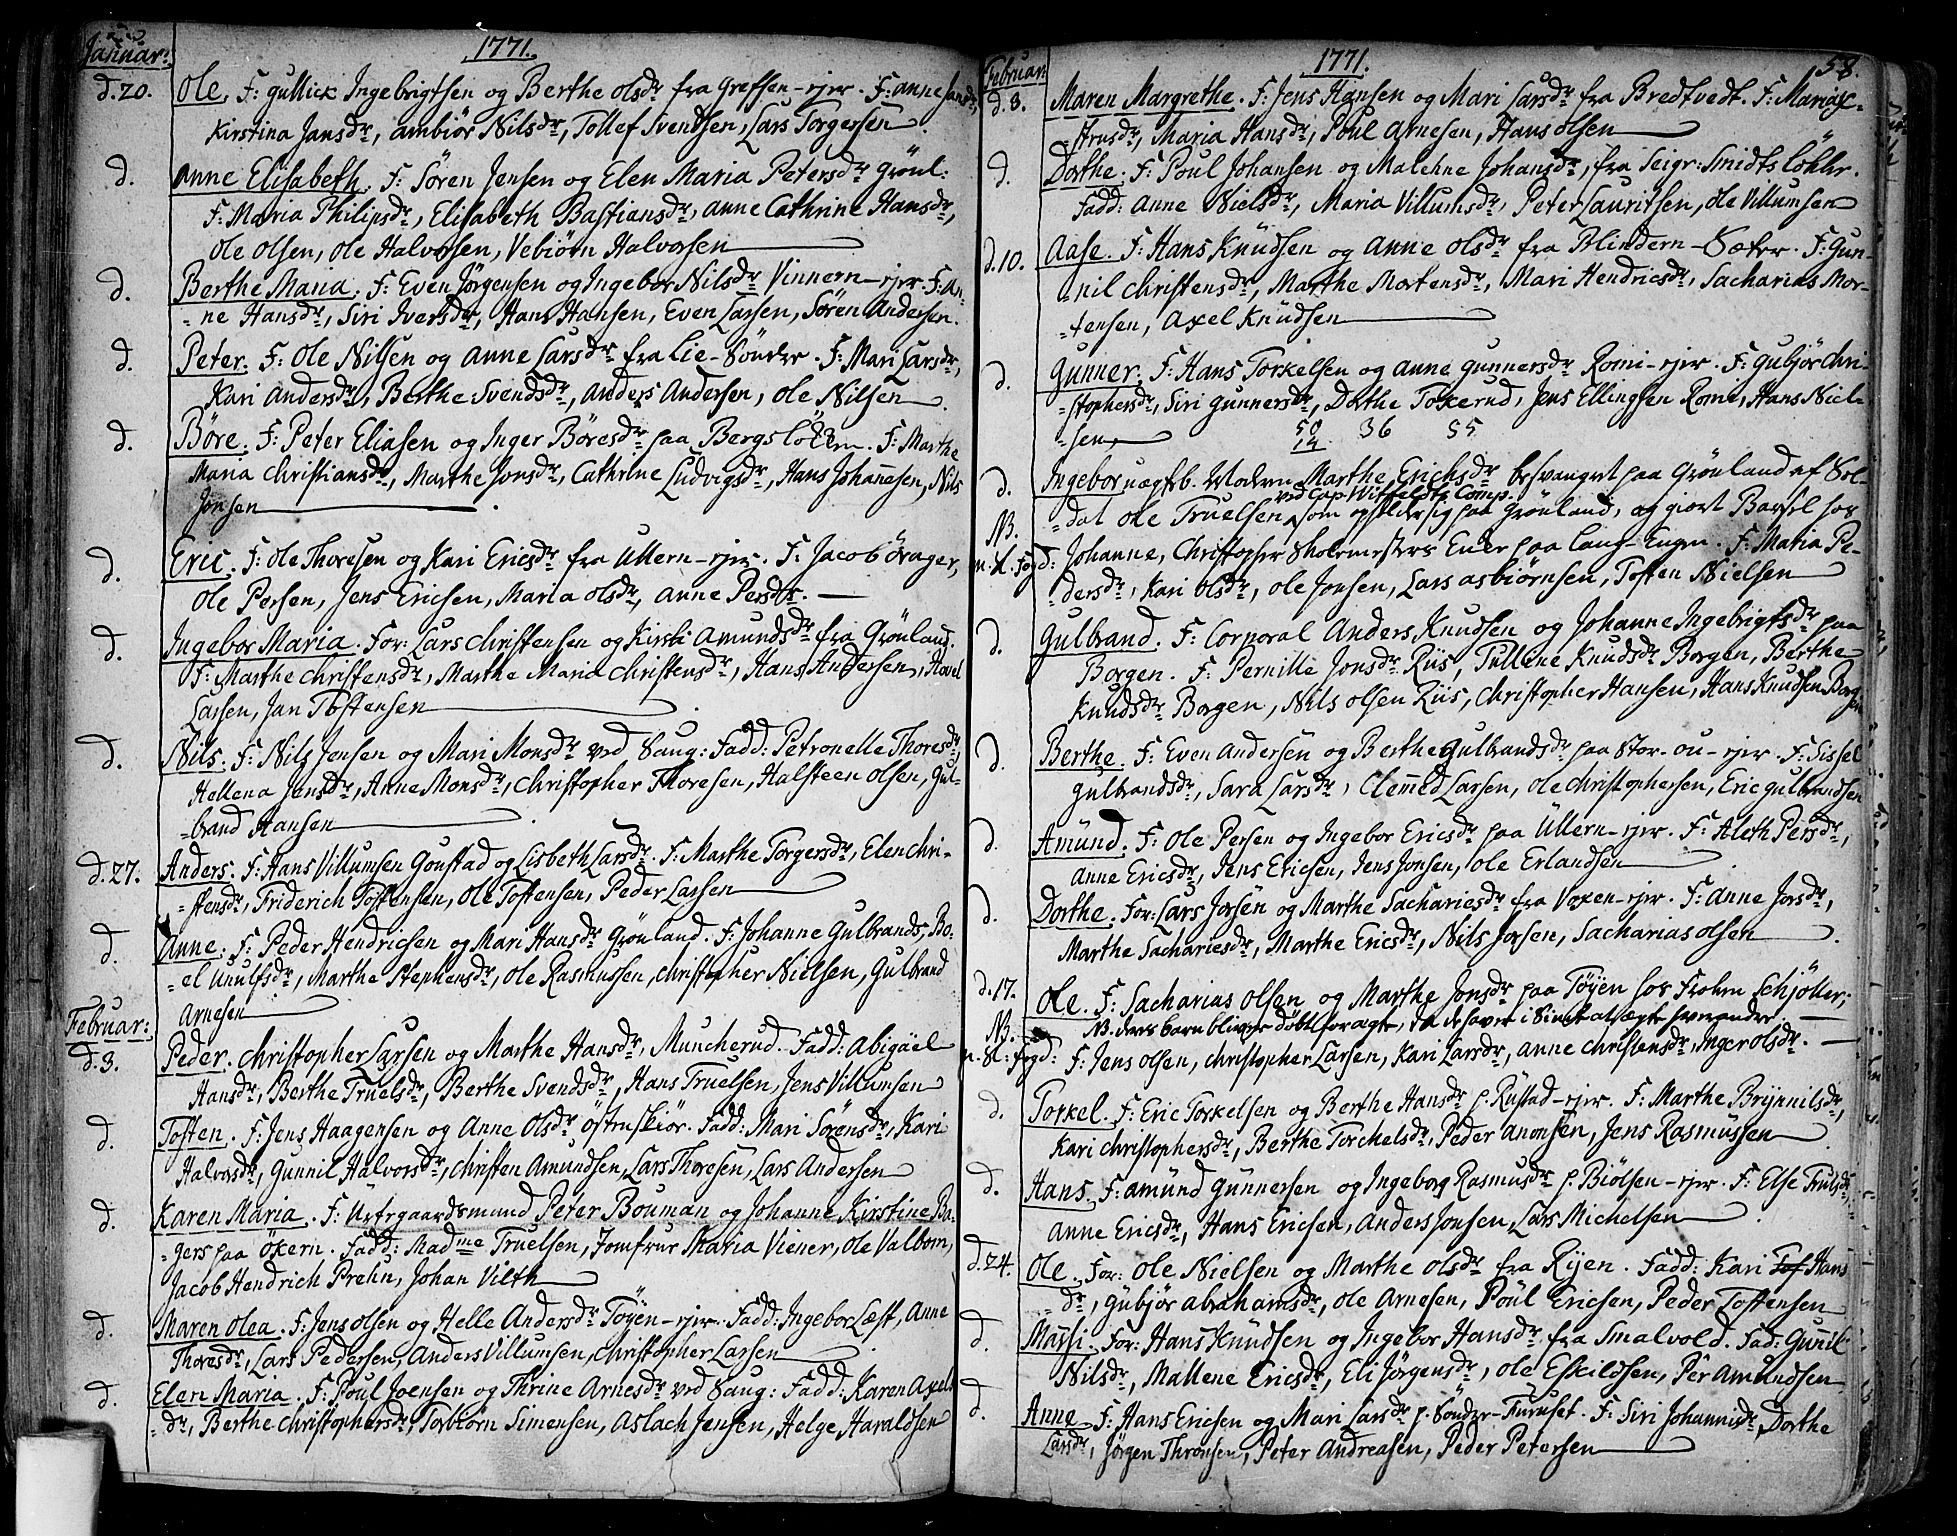 Januar:
1771.
d. 20. Ole. F: Gullick Ingebrigtsen og Berthe Olsdr fra Greffsen-ejer. F: Anne Jansdr,
Kirstina Jansdr, Ambiör Nilsdr, Tollef Svendsen, Lars Torgersen
d. Anne Elisabeth. F: Sören Jensen og Elen Maria Petersdr Grönl:
F: Maria Philipsdr, Elisabeth Bastiansdr, Anne Cathrine Hansdr,
Ole Olsen, Ole Halvorsen, Vebiörn Halvorsen
d. Berthe Maria. F: Even Jörgensen og Ingebor Nilsdr Vinnern-ejer F: An-
-ne Hansdr, Siri Iversdr, Hans Hansen, Even Larsen, Sören Andersen.
d. Peter. F: Ole Nilsen og Anne Larsdr fra Lie-Sönder. F: Mari Larsdr,
Kari Andersdr, Berthe Svendsdr, Anders Andersen, Ole Nilsen.
d. Böre. F: Peter Eliasen og Inger Böresdr paa Bergslökken. F: Marthe
Maria Christiansdr, Marthe Jonsdr, Cathrine Ludvigsdr, Hans Johannesen, Nils
Jonsen
d. Eric. F: Ole Thoresen og Kari Ericsdr fra Ullern-ejer. F: Jacob Örager,
Ole Persen, Jens Ericsen, Maria Olsdr, Anne Persdr.
d. Ingebor Maria. For: Lars Christensen og Kirsti Amundsdr fra Grönland.
F: Marthe Christensdr, Marthe Maria Christensdr, Hans Andersen, Havel
Larsen, Jan Tostensen
d. Nils. F: Nils Jensen og Mari Monsdr ved Saug: Fadd: Petronelle Thoresdr,
Hellena Jensdr, Anne Monsdr, Christopher Thoresen, Halsteen Olsen, Gul-
-brand Hansen
d. 27. Anders. F: Hans Villumsen Goustad og Lisbeth Larsdr. F: Marthe Torgersdr, Elen Chri-
-stensdr, Friderich Tostensen, Ole Tostensen, Peder Larsen
d. Anne. F: Peder Hendricsen og Mari Hansdr Grönland. F: Johanne Gulbrands, Bo-
-el Unulfsdr, Marthe Stephensdr, Ole Rasmussen, Christopher Nielsen, Gulbrand
Arnesen
Februar:
d. 3. Peder. Christopher Larsen og Marthe Hansdr, Muncherud. Fadd: Abigäel
Hansdr, Berthe Truelsdr, Berthe Svendsdr, Hans Truelsen, Jens Villumsen
d. Tosten. F: Jens Haagensen og Anne Olsdr Östenskiör. Fadd: Mari Sörensdr, Kari
Halvorsdr, Gunnil Halvorsdr, Christen Amundsen, Lars Thoresen, Lars Andersen
d. Karen Maria. F: Urtegaardsmand Peter Bouman og Johanne Kirstine Ba-
-gers paa Ökern. Fadd: Madme Truelsen, Jomfrue Maria Viener, Ole Valbom,
Jacob Hendrich Prehn, Johan Vilth
d. Maren Olea. F: Jens Olsen og Helle Andersdr Töyen-ejer. Fadd: Ingebor Læst, Anne
Thoresdr, Lars Pedersen, Anders Villumsen, Christopher Larsen
d. Elen Maria. F: Poul Joensen og Thrine Arnesdr ved Saug: Fadd: Karen Axels
-dr, Berthe Christophersdr, Torbiörn Simensen, Aslach Jensen, Helge Haraldsen
Februar
1771.
58.
d. 3. Maren Margrethe. F: Jens Hansen og Mari Larsdr fra Bredtvedt. F: Maria
-strusdr, Maria Hansdr, Poul Arnesen, Hans Olsen
d. Dorthe. F: Poul Johansen og Malehne Johansdr, fra Seigr: Smidts Lökke.
Fadd: Anne Nielsdr, Maria Villumsdr, Peter Lauritsen, Ole Villumsen
d. 10. Aase. F: Hans Knudsen og Anne Olsdr fra Blindern-Sæter. F: Gun-
-nil Christensdr, Marthe Mortensdr, Mari Hendricsdr, Sacharias Mor-
-tensen, Axel Knudsen
d. Gunner. F: Hans Torkelsen og Anne Gunnersdr Romi-ejer. F: Gubjör Chri-
-stophersdr, Siri Gunnersdr, Dorthe Tokerud, Jens Ellingsen Romi, Hans Niel-
-sen
50 36 55
14
d. Ingebor uægtb. Moderen Marthe Erichsdr besvangret paa Grönland af Sol-
ved Cap: Witfeldts Comp.
-dat Ole Truelsen, som opholder sig paa Grönland, og giort Barsel hos
NB.
Johanne, Christopher Skolemesters Enke paa Lang-Engen. F: Maria Pe-
-dersdr, Kari Olsdr, Ole Jonsen, Lars Asbiörnsen, Tosten Nielsen
d. Gulbrand. F: Corporal Anders Knudsen og Johanne Ingebrigtsdr paa
Borgen. F: Pernille Jonsdr Riis, Tulline Knudsdr Borgen, Berthe
Knudsdr Borgen, Nils Olsen Riis, Christopher Hansen, Hans Knudsen Borgen
d. Berthe. F: Even Andersen og Berthe Gulbrandsdr paa Stor-ou-ejer. F: Sissel
Gulbrandsdr, Sara Larsdr, Clemed Larsen, Ole Christophersen, Eric Gulbrandsen
d. Amund. F: Ole Persen og Ingebor Ericsdr paa Ullern-ejer. F: Aleth Persdr,
Anne Ericsdr, Jens Ericsen, Jens Jonsen, Ole Erlandsen
d. Dorthe. For: Lars Jorsen og Marthe Sachariesdr fra Voxen-ejer. F: Anne Jorsdr,
Marthe Sachariesdr, Marthe Ericsdr, Nils Jorsen, Sacharias Olsen
d. 17. Ole. F: Sacharias Olsen og Marthe Jonsdr paa Töyen hos Frohen Schjöller;
NB. NB. deres barn bliver döbt for ægte, da de haver i Sinde at ægte hverandre.
F: Jens Olsen, Christopher Larsen, Kari Larsdr, Anne Christensdr, Inger Olsdr.
d. Torkel. F: Eric Torkelsen og Berthe Hansdr p. Rustad-ejer. F: Marthe Brynnilsdr,
Kari Christophersdr, Berthe Torchelsdr, Peder Anonsen, Jens Rasmussen
d. Hans. F: Amund Gunnersen og Ingeborg Rasmusdr p. Biölsen-ejer. F: Else Trulsdr,
Anne Ericsdr, Hans Ericsen, Anders Jonsen, Lars Michelsen
d. 24. Ole. For: Ole Nielsen og Marthe Olsdr fra Ryen. Fadd: Kari Tof Hans
dr, Gubjör Abrahamsdr, Ole Arnesen, Poul Ericsen, Peder Tostensen
d. Marsi. For: Hans Knudsen og Ingebor Hansdr fra Smalvold. Fad: Gunil
Nilsdr, Mallene Ericsdr, Eli Jörgensdr, Ole Eskildsen, Per Amundsen
d. Anne. F: Hans Ericsen og Mari Larsdr p. Sönder-Furuset. F: Siri Johannisdr, Dorthe
Larsdr, Jörgen Thronsen, Peter Andreasen, Peder Petersen